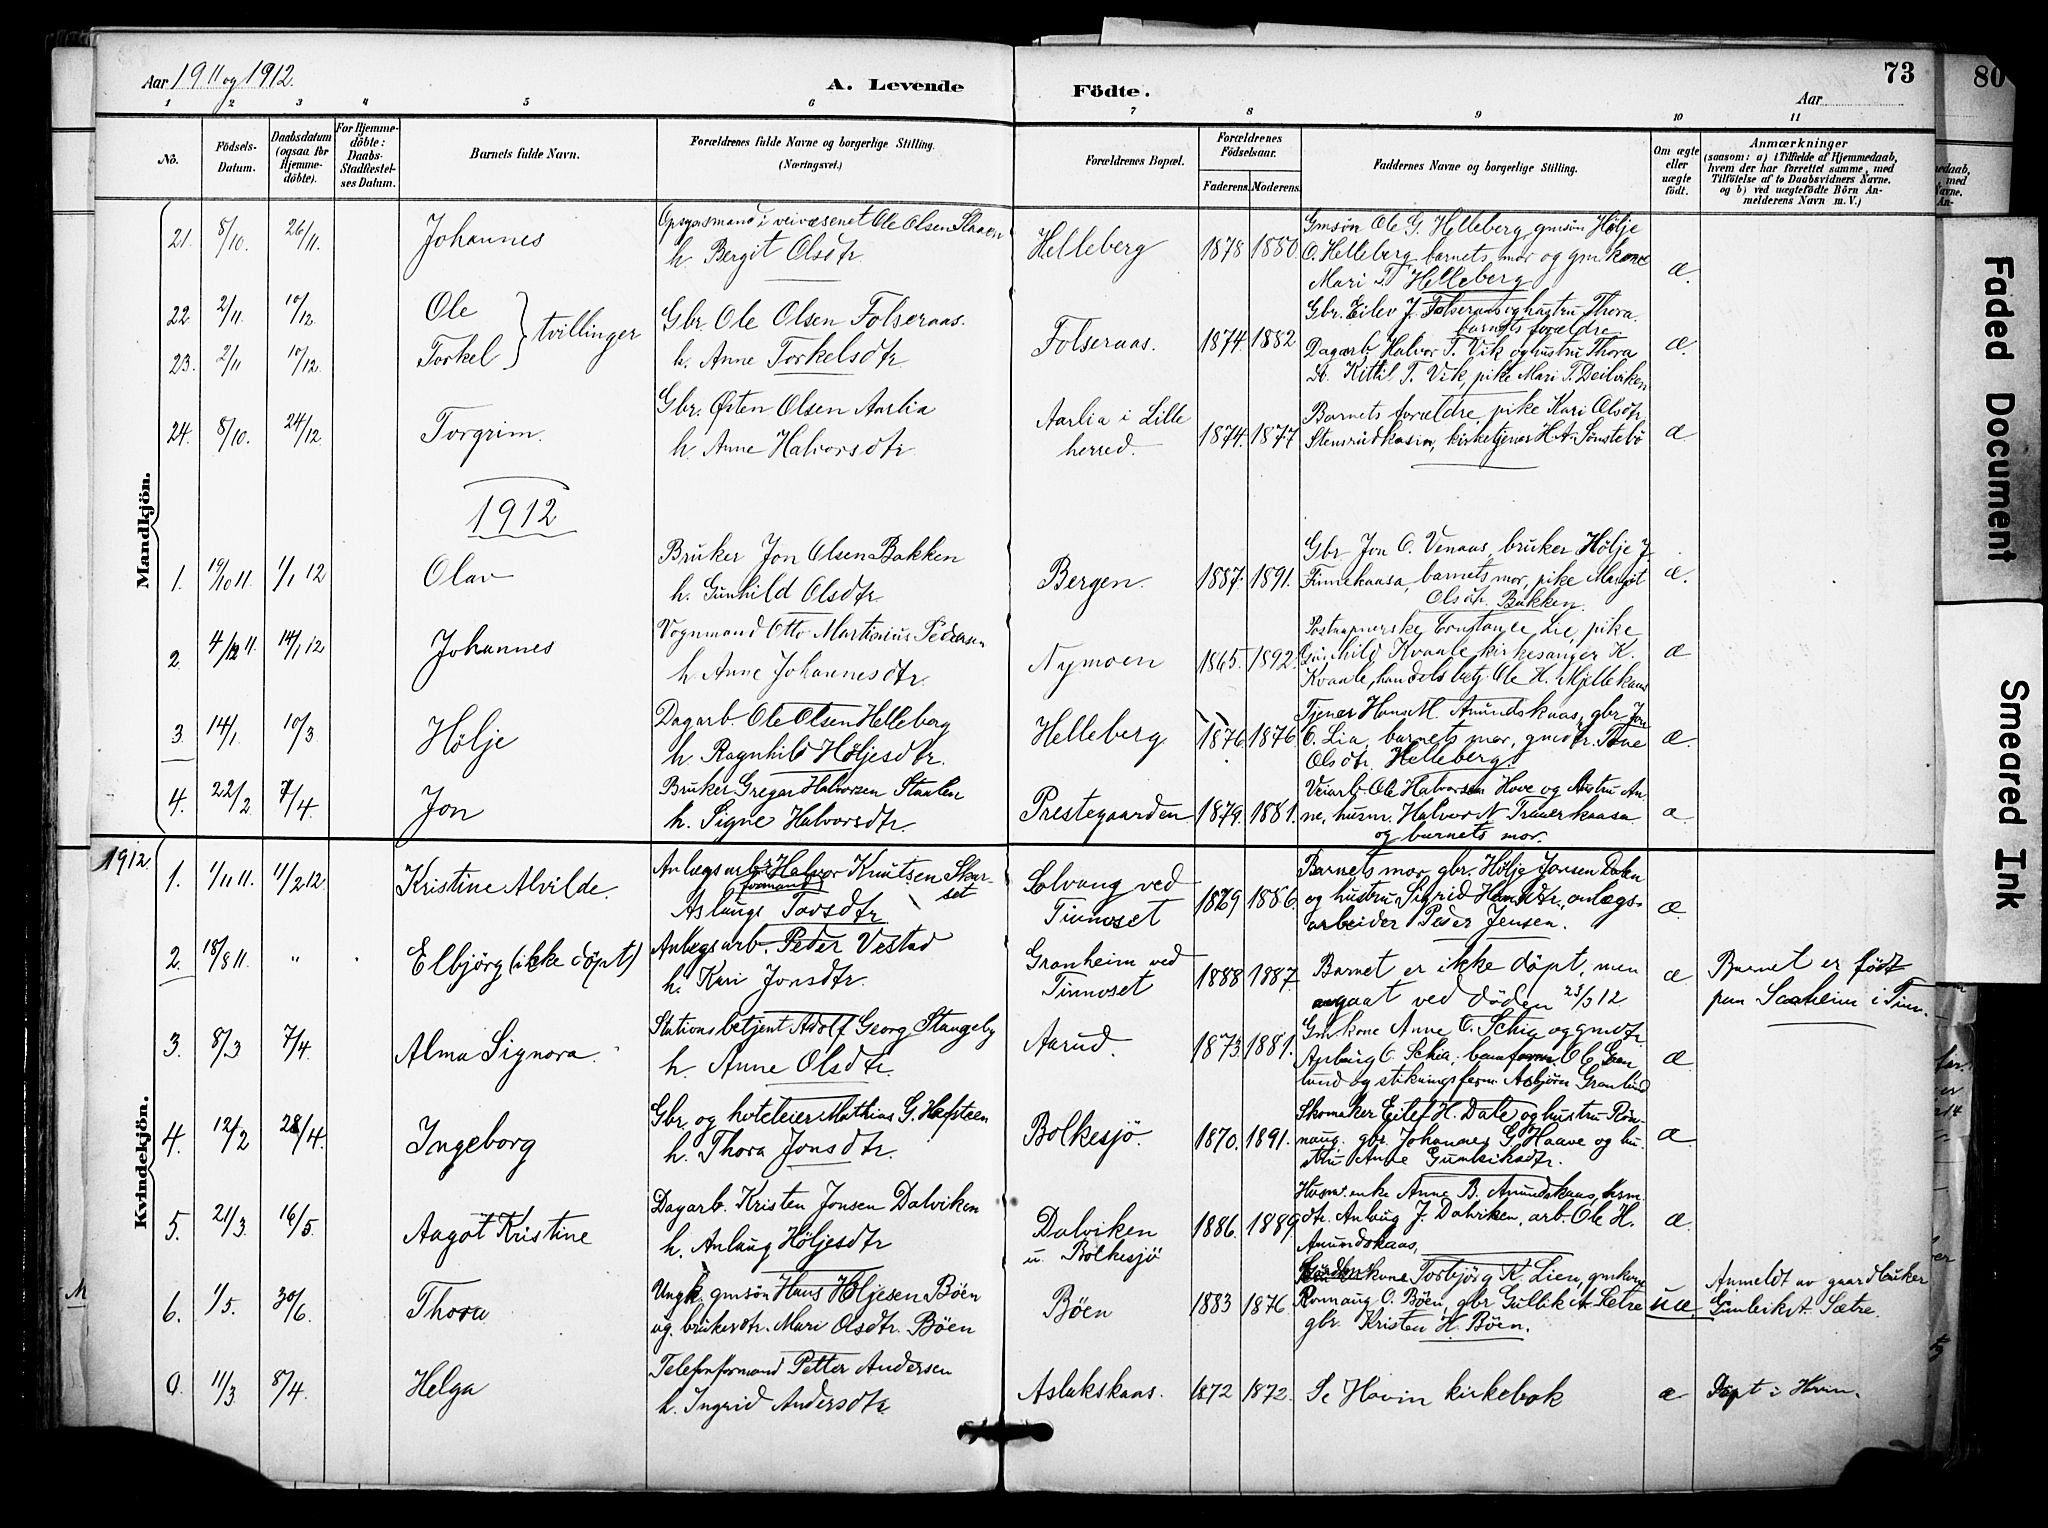 Aar 1911 og 1912.
A. Levende Födte.
73
80
Aar
1 2 3 4 5 6 7 8 9 10 11
No.
Födsels-Datum.
Daabsdatum (ogsaa for Hjemme-döbte).
For Hjemme-döbte: Daabs-Stadfæstel-ses Datum.
Barnets fulde Navn.
Forældrenes fulde Navne og borgerlige Stilling.
(Næringsvei.)
Forældrenes Bopæl.
Forældrenes Födselsaar.
Faderens. Moderens.
Faddernes Navne og borgerlige Stilling.
Om ægte eller uægte födt.
Anmærkninger
(saasom: a) i Tilfælde af Hjemmedaab,
hvem der har forrettet samme, med
Tilföielse af to Daabsvidners Navne.
og b) ved uægtefödte Börn An-
melderens Navn m. V.)
Mandkjön.
21. 8/10. 26/11. Johannes
Opsynsmand i veivæsenet Ole Olsen Staaen
h. Bergit Olsdtr.
Helleberg 1878 1880.
Gmsön Ole G. Helleberg, gmsön Hölje
O. Helleberg, barnets mor og gm. kone
Mari T. Helleberg
æ.
22. 2/11. 10/12. Ole
23. 2/11 10/12. Torkel
tvillinger
Gbr. Ole Olsen Folseraas.
h. Anne Torkelsdtr
Folseraas. 1874. 1882
Gbr. Eilev J. Folseraas og hustru Thora.
barnets forældre.
Dagarb. Halvor T. Vik og hustru Thora
Kittil T. Vik, pike Mari T. Deilviken
æ.
24. 8/10. 24/12. Torgrim.
Gbr. Østen Olsen Aarlia
h. Anne Halvorsdtr.
Aarlia i Lille
herred. 1874. 1877
Barnets forældre, pike Kari Olsdtr
Stensrudkasin, kirketjener H. A. Sønstebö
æ
1912
1. 19/10 11. 1/1 12 Olav
Bruker Jon Olsen Bakken
h. Gunhild Olsdtr.
Bergen. 1887. 1891.
Gbr Jon O. Venaas, bruker Hölje J.
Finnekaasa, barnets mor, pike Margit
Olsdtr. Bakken.
æ.
2. 4/12 11. 14/1 12 Johannes
Vognmand Otto Martinius Pedersen
h. Anne Johannesdtr.
Nymoen 1865. 1892.
Postaapnerske Constance Lie, pike
Gunhild Kvaale, kirkesanger K.
Kvaale, handelsbetj. Ole H. Mjellekaas
æ
3 14/1. 10/3 Hölje
Dagarb. Ole Olsen Helleberg
h. Ragnhild Höljesdtr.
Helleberg 1876. 1876
Tjener Hans M. Amundskaas, gbr Jon
O. Lia, barnets mor, gmdtr. Tone
Olsdtr. Helleberg.
æ.
4. 22/2 7/4. Jon
Bruker Gregar Halvorsen Staalen
h. Signe Halvorsdtr.
Prestegaarden 1879. 1881.
Veiarb. Ole Halvorsen Hove og hustru An-
ne, husm. Halvor N.
og barnets mor.
æ
Kvindekjön.
1912.
1. 1/11 11. 11/2 12. Kristine Alvilde.
Anlægsarb. Halvor Knutsen Skar-
formand set
Aslaug Tovsdtr.
Solvang ved
Tinnoset 1879 1886.
Barnets mor, gbr. Hölje Jonsen Dalen
og hustru Sigrid Hansdtr, anlægs-
arbeider Peder Jensen.
æ
2. 18/8 11. " Elbjörg (ikke döpt)
Anlegsarb. Peder Vestad
h. Kari Jonsdtr.
Granheim ved
Tinnoset 1888 1887.
Barnet er ikke döpt, men
avgaat ved döden 23/3 12
æ
Barnet er födt
paa Saaheim i Tinn.
3. 8/3 7/4. Alma Signora.
Stationsbetjent Adolf Georg Stangeby
h. Anne Olsdtr.
Aarud. 1873 1881.
Gm.kone Anne O. Schia og gmdtr.
Aslaug O. Schia, banform. O. C. Gran
lund og stikningsform. Asbjörn Granlund
æ
4. 12/2 28/4. Ingeborg
Gbr. og hoteleier Mathias G. Hafsteen
h. Thora Jonsdtr.
Bolkesjö. 1870. 1891.
Skomaker Eilef H. Dale og hustru Rön-
naug. gbr. Johannes G. Haave og hu-
stru Anne Gunleiksdtr.
æ
5. 21/3 16/5. Aagot Kristine
Dagarb. Kristen Jonsen Dalviken
h. Anlaug Höljesdtr
Dalviken
u. Bolkesjö 1886. 1889
Husm. enke Anne B. Amundskaas, hsm-
dtr. Anlaug J. Dalviken, arb. Ole H.
Amundskaas.
æ
6. 1/5. 30/6. Thora
Ungk. gmsön Hans Höljesen Böen
og brukerdtr. Mari Olsdtr. Böen
Böen 1883 1876.
kone Torbjörg K. Lien, gmkone
Ronnaug O. Böen, gbr Gullik A. Sætre
gbr. Kristen H. Böen.
uæ
Anmeldt av gaardbruker
Gunleik A. Sætre.
0. 11/3 8/4. Helga
Telefonformand Petter Andersen
h. Ingrid Andersdtr
Aslakskaas. 1872 1872.
Se Hovin kirkebok
æ
Döpt i Hovin.
Faded Document
Smeared Ink